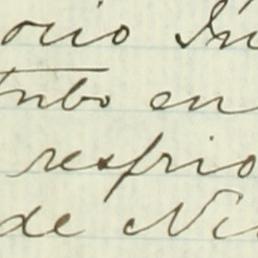 ocio In
tubo en
resfrio
de Ni